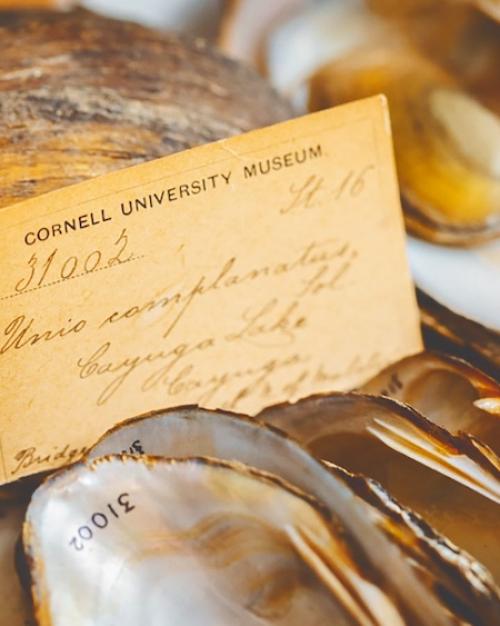 CORNELL UNIVERSITY MUSEUM
31002 St. 16
Unio complanatus, Sol.
Cayuga Lake
Cayuga
Bridge
31002